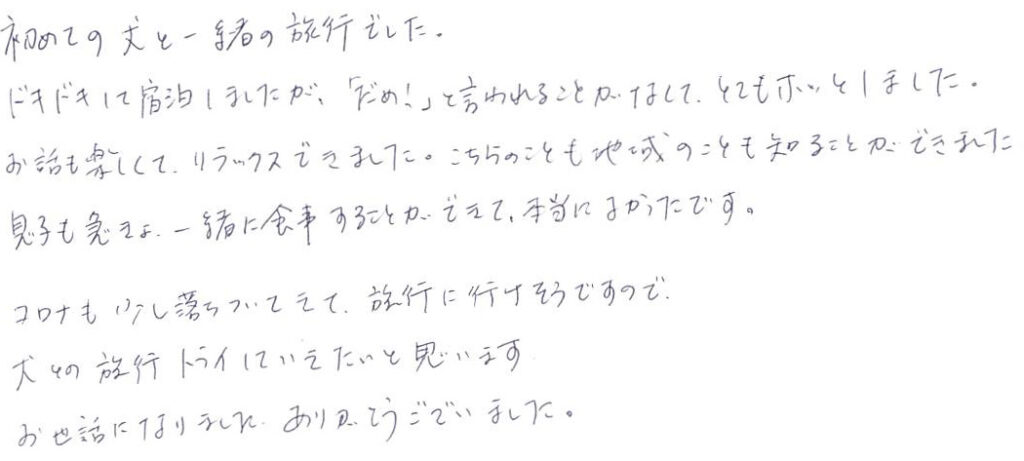 初めての犬と一緒の旅行でした。
ドキドキして宿泊しましたが、「だめ!」と言われることがなくて、とてもホッとしました。
お話も楽しくて、リラックスできました。こちらのことも地域のことも知ることができました
息子も急きょ、一緒に食事することができて、本当によかったです。
コロナも少し落ちついてきて、旅行に行けそうですので、
犬との旅行トライしていきたいと思います
お世話になりました。ありがとうございました。